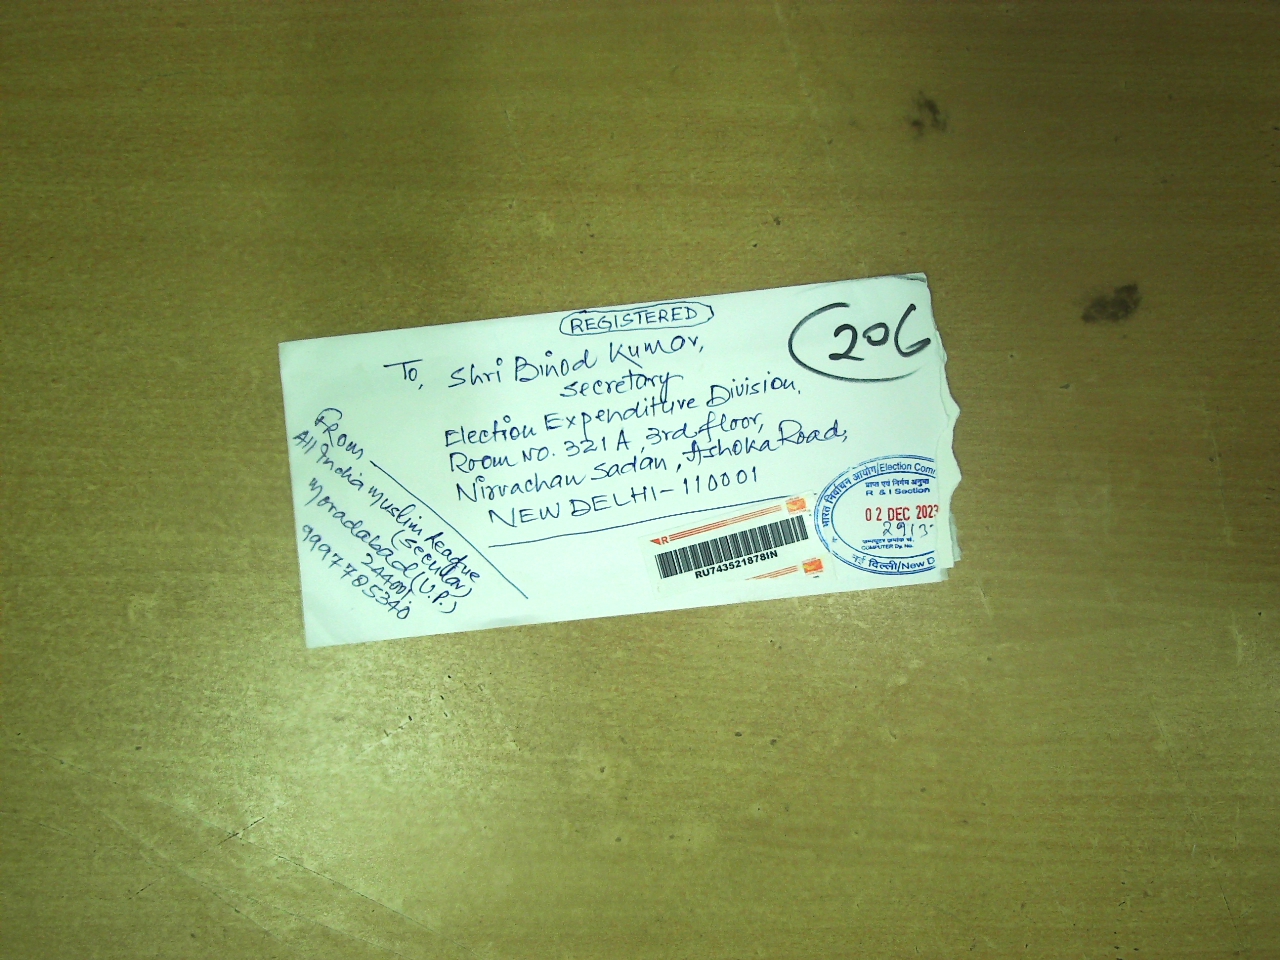 REGISTERED
206
To, Shri Binod Kumar,
Secretary
Election Expenditure Division,
Room No. 321A, 3rd floor,
Nirvachan Sadan, Ashoka Road,
NEW DELHI-110001
From
All India Muslim League
(Secular)
Moradabad (U.P.)
244001
9997785340
R
RU743521878IN
भारत निर्वाचन आयोग/Election Com
प्राप्त एवं निर्गम अनुभाग
R & I Section
02 DEC 2023
COMPUTER Dy. No.
नई दिल्ली/New D